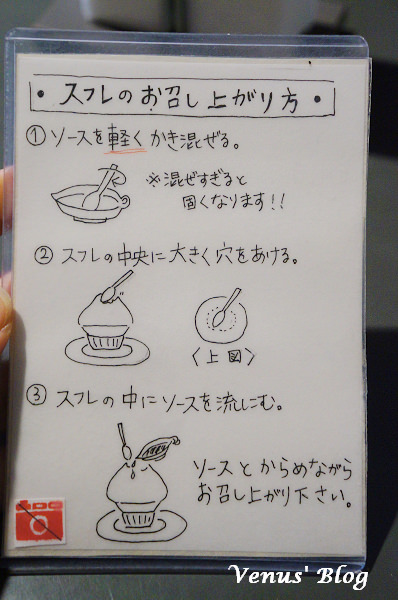 ・スフレのお召し上がり方・
① ソースを軽くかき混ぜる。
※混ぜすぎると
固くなります!!
② スフレの中央に大きく穴をあける。
〈上図〉
③ スフレの中にソースを流しこむ。
ソースとからめながら
お召し上がり下さい。
Venus' Blog